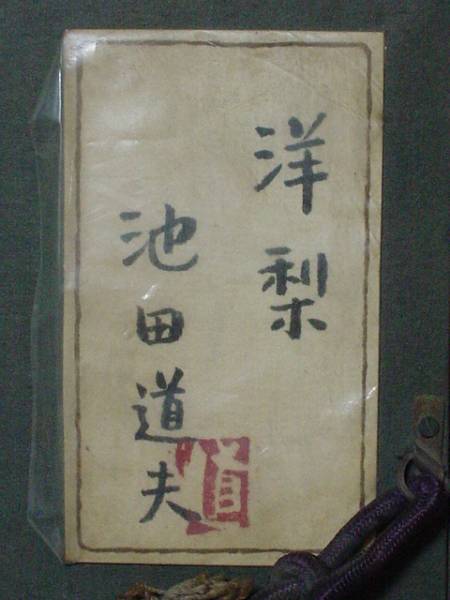 洋梨
池田道夫